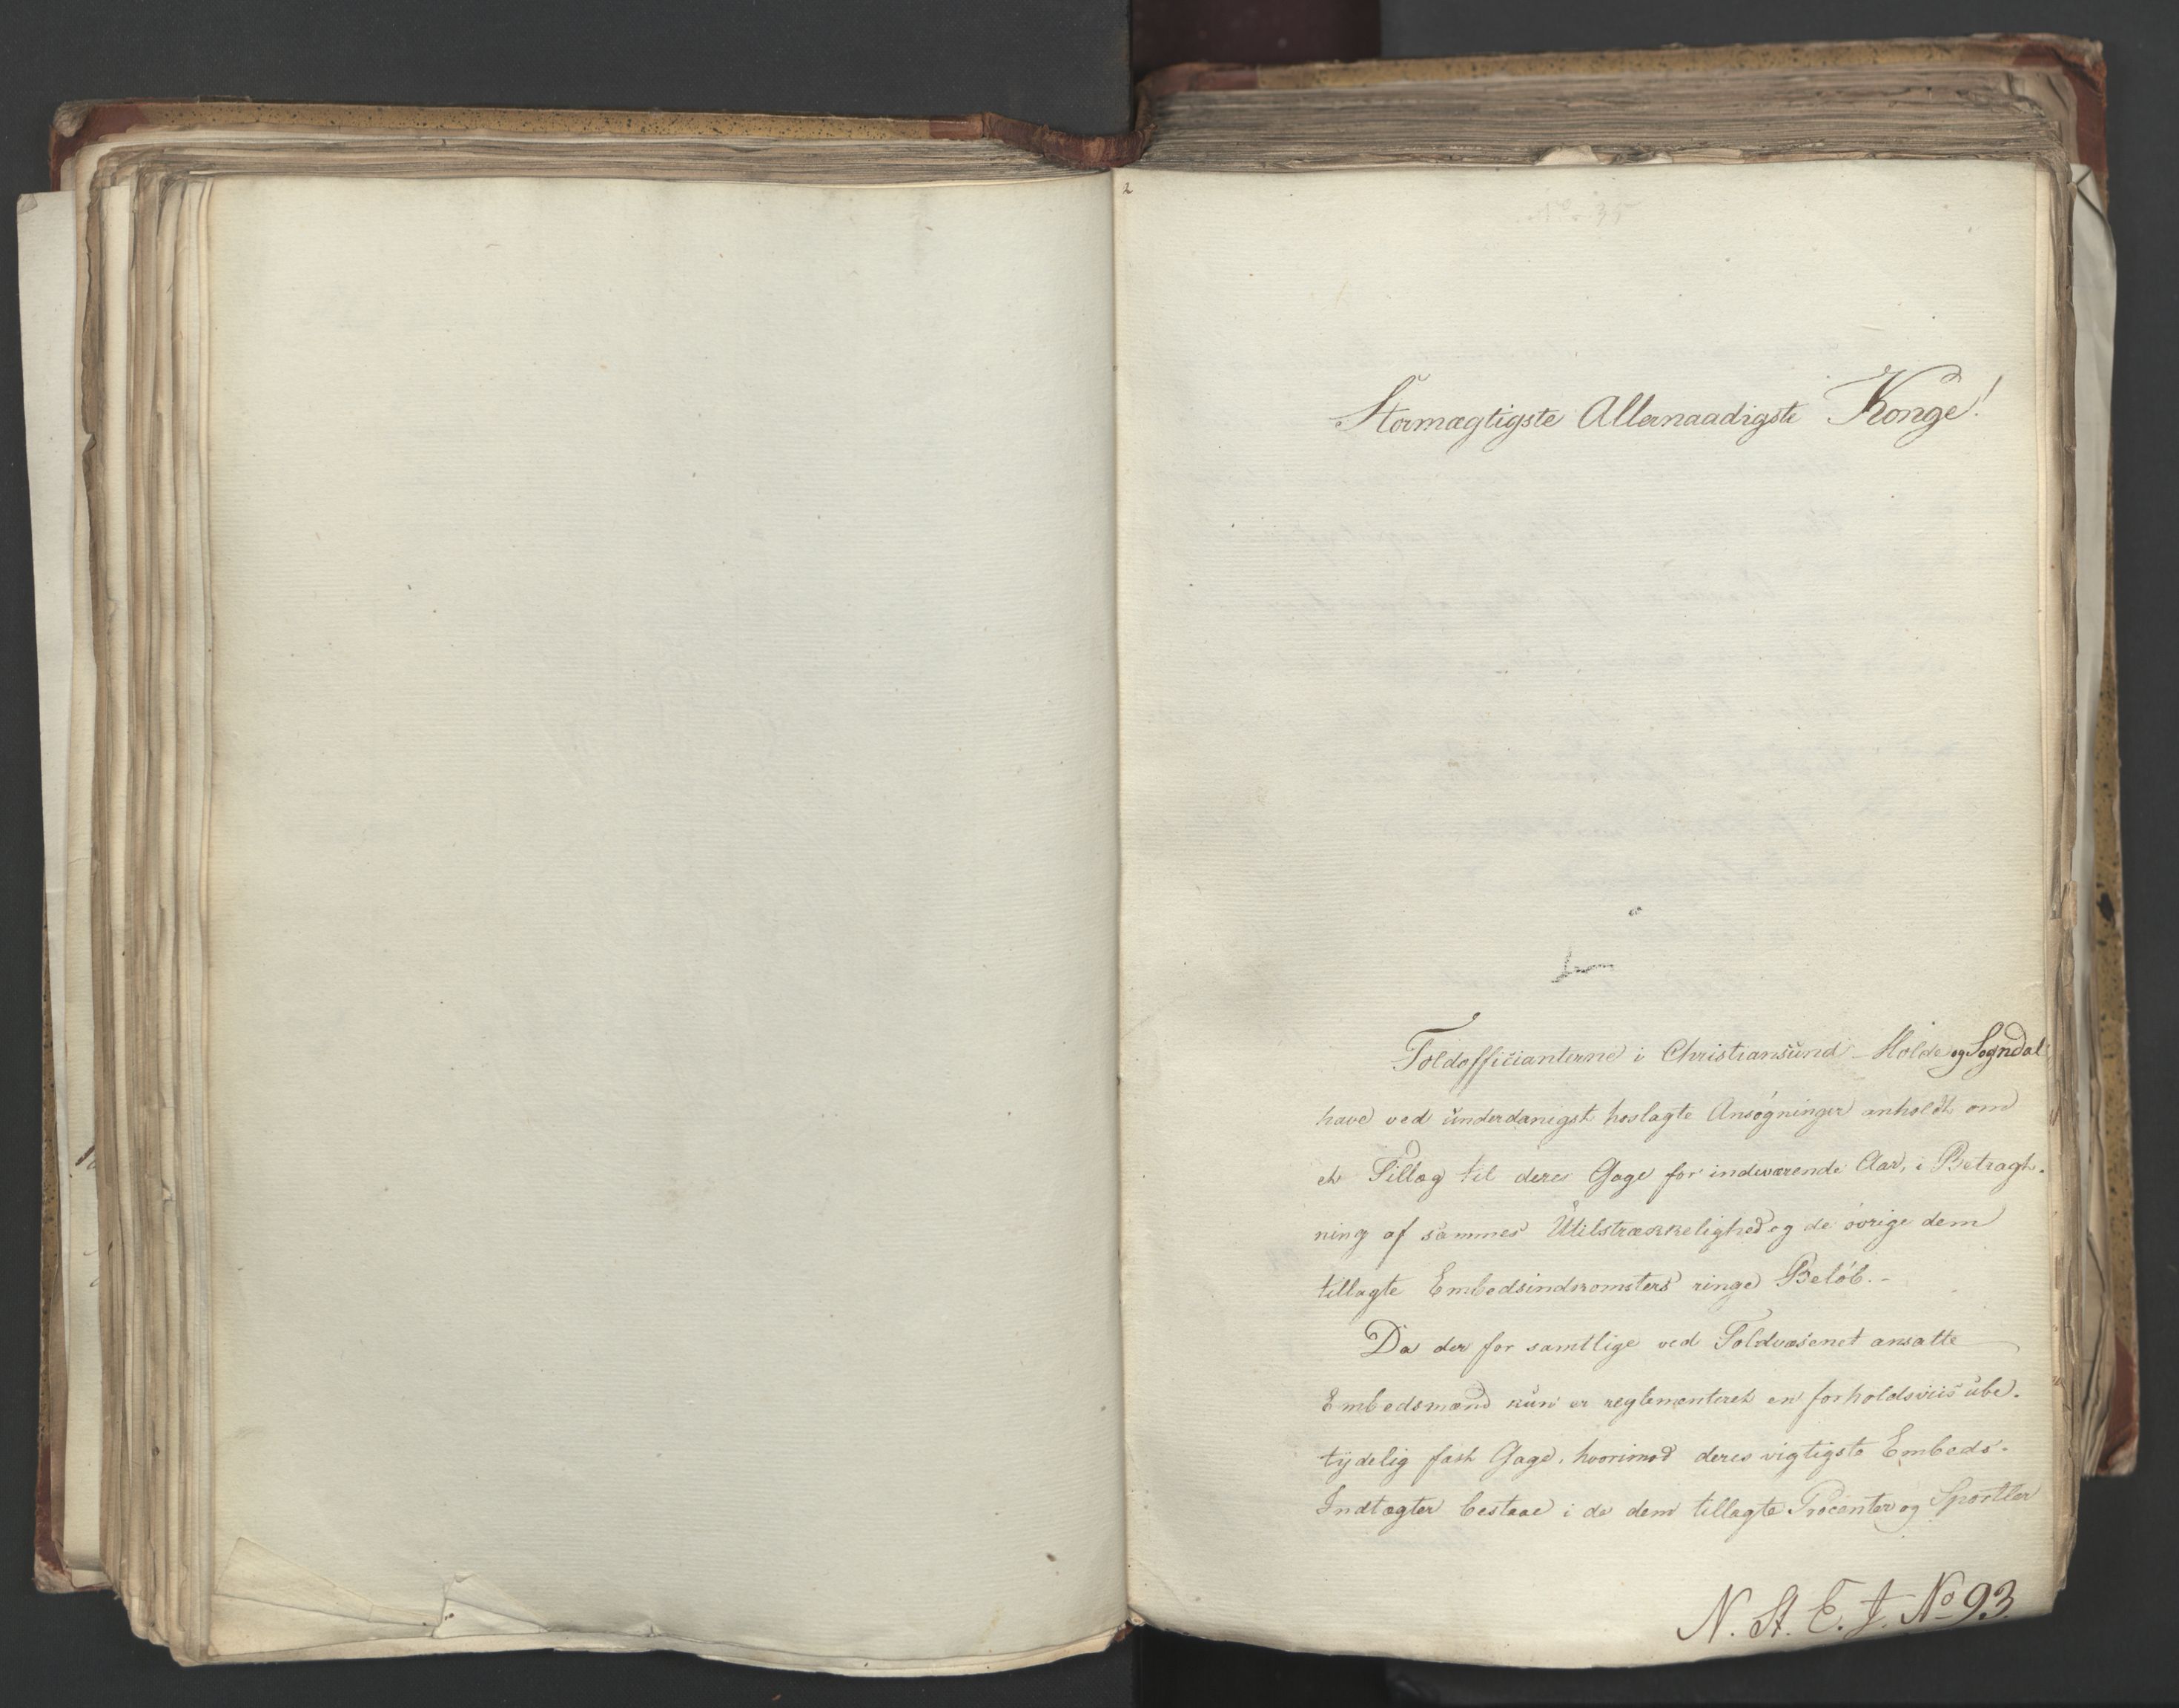 2
No. 35
Stormægtigste Allernaadigste Konge!
Toldofficianterne i Christiansund - Molde og Sogndal
have ved ünderdanigst hoslagte Ansøgninger anholdt om
et Tillæg til deres Gage for indeværende Aar, i Betragt-
ning af sammes Ütilstrækkelighed og de øvrige dem
tillagte Embedsindkomsters ringe Beløb. -
Da der for samtlige ved Toldvæsenet ansatte
Embedsmænd kün er reglementeret en forholdsviis übe-
tydelig fast Gage, hvorimod deres vigtigste Embeds-
Indtægter bestaae i de dem tillagte Procenter og Sportler
N. St. E. J. No 93